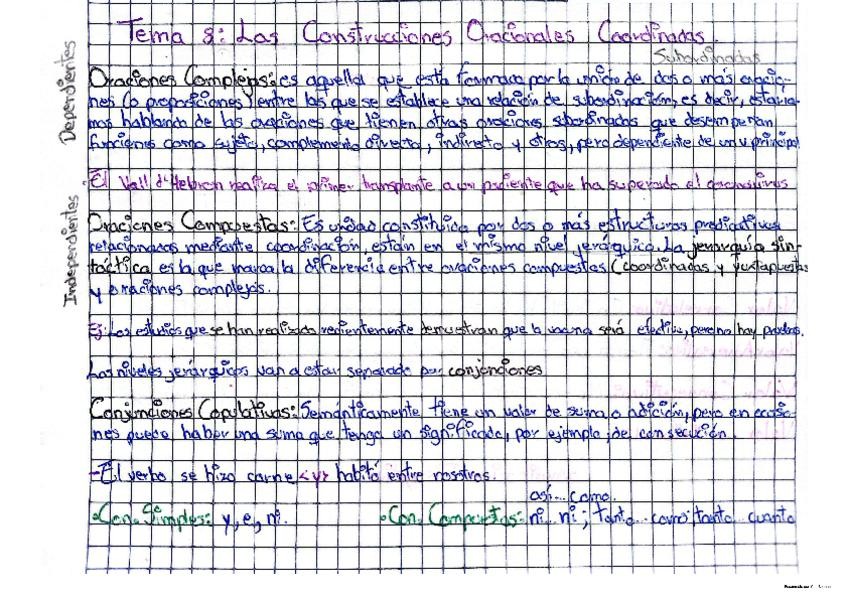 Tema 8: Las Construcciones Oracionales Coordinadas.
Subordinadas
Dependientes
Oraciones Complejas: es aquella que está formada por la unión de dos o más oracio-
nes (o proposiciones) entre las que se establece una relación de subordinación, es decir, estaría-
mos hablando de las oraciones que tienen otras oraciones subordinadas que desempeñan
funciones como sujeto, complemento directo, indirecto y otros, pero dependiente de un v principal
El Vall d'Hebron realiza el primer transplante a un paciente que ha superado el coronavirus
Independientes
Oraciones Compuestas: Es unidad constituida por dos o más estructuras predicativas
relacionadas mediante coordinación, están en el mismo nivel jerárquico. La jerarquía sin-
táctica es la que marca la diferencia entre oraciones compuestas (coordinadas y yuxtapuestas
y oraciones complejas.
Ej: Los estudios que se han realizado recientemente demuestran que la vacuna será efectiva, pero no hay pruebas.
Los niveles jerárquicos van a estar separado por conjunciones
Conjunciones Copulativas: Semánticamente tiene un valor de suma o adición, pero en ocasio-
nes puede haber una suma que tenga un significado, por ejemplo, de consecución.
-El verbo se hizo carne <y> habitó entre nosotros.
así... como.
Con. Simples: y, e, ni.
Con. Compuestas: ni... ni; tanto... como; tanto... cuanto